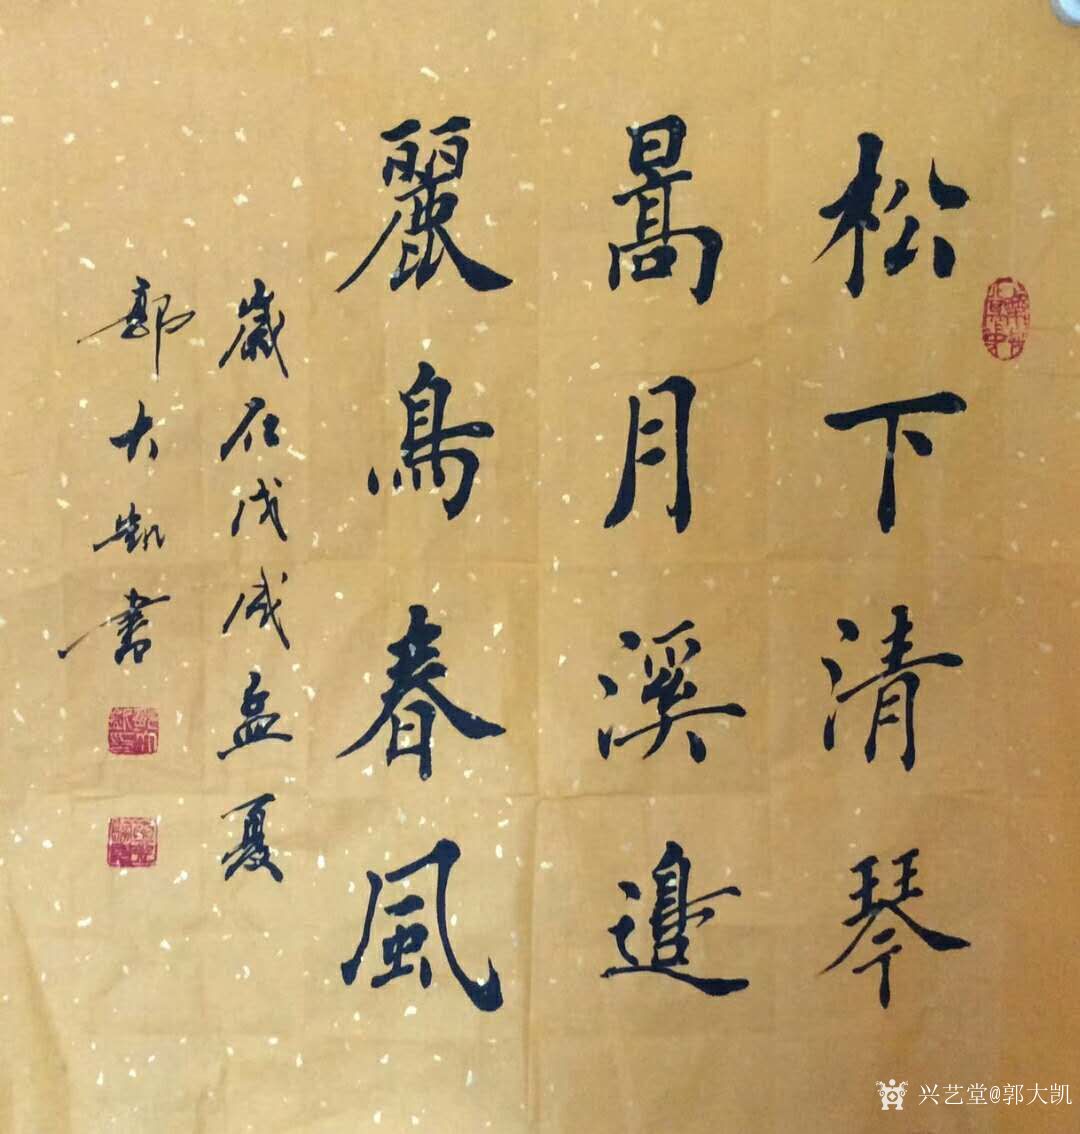 松下清琴
暠月溪邊
麗鳥春風
歲在戊戌孟夏
郭大凱書
兴艺堂@郭大凯